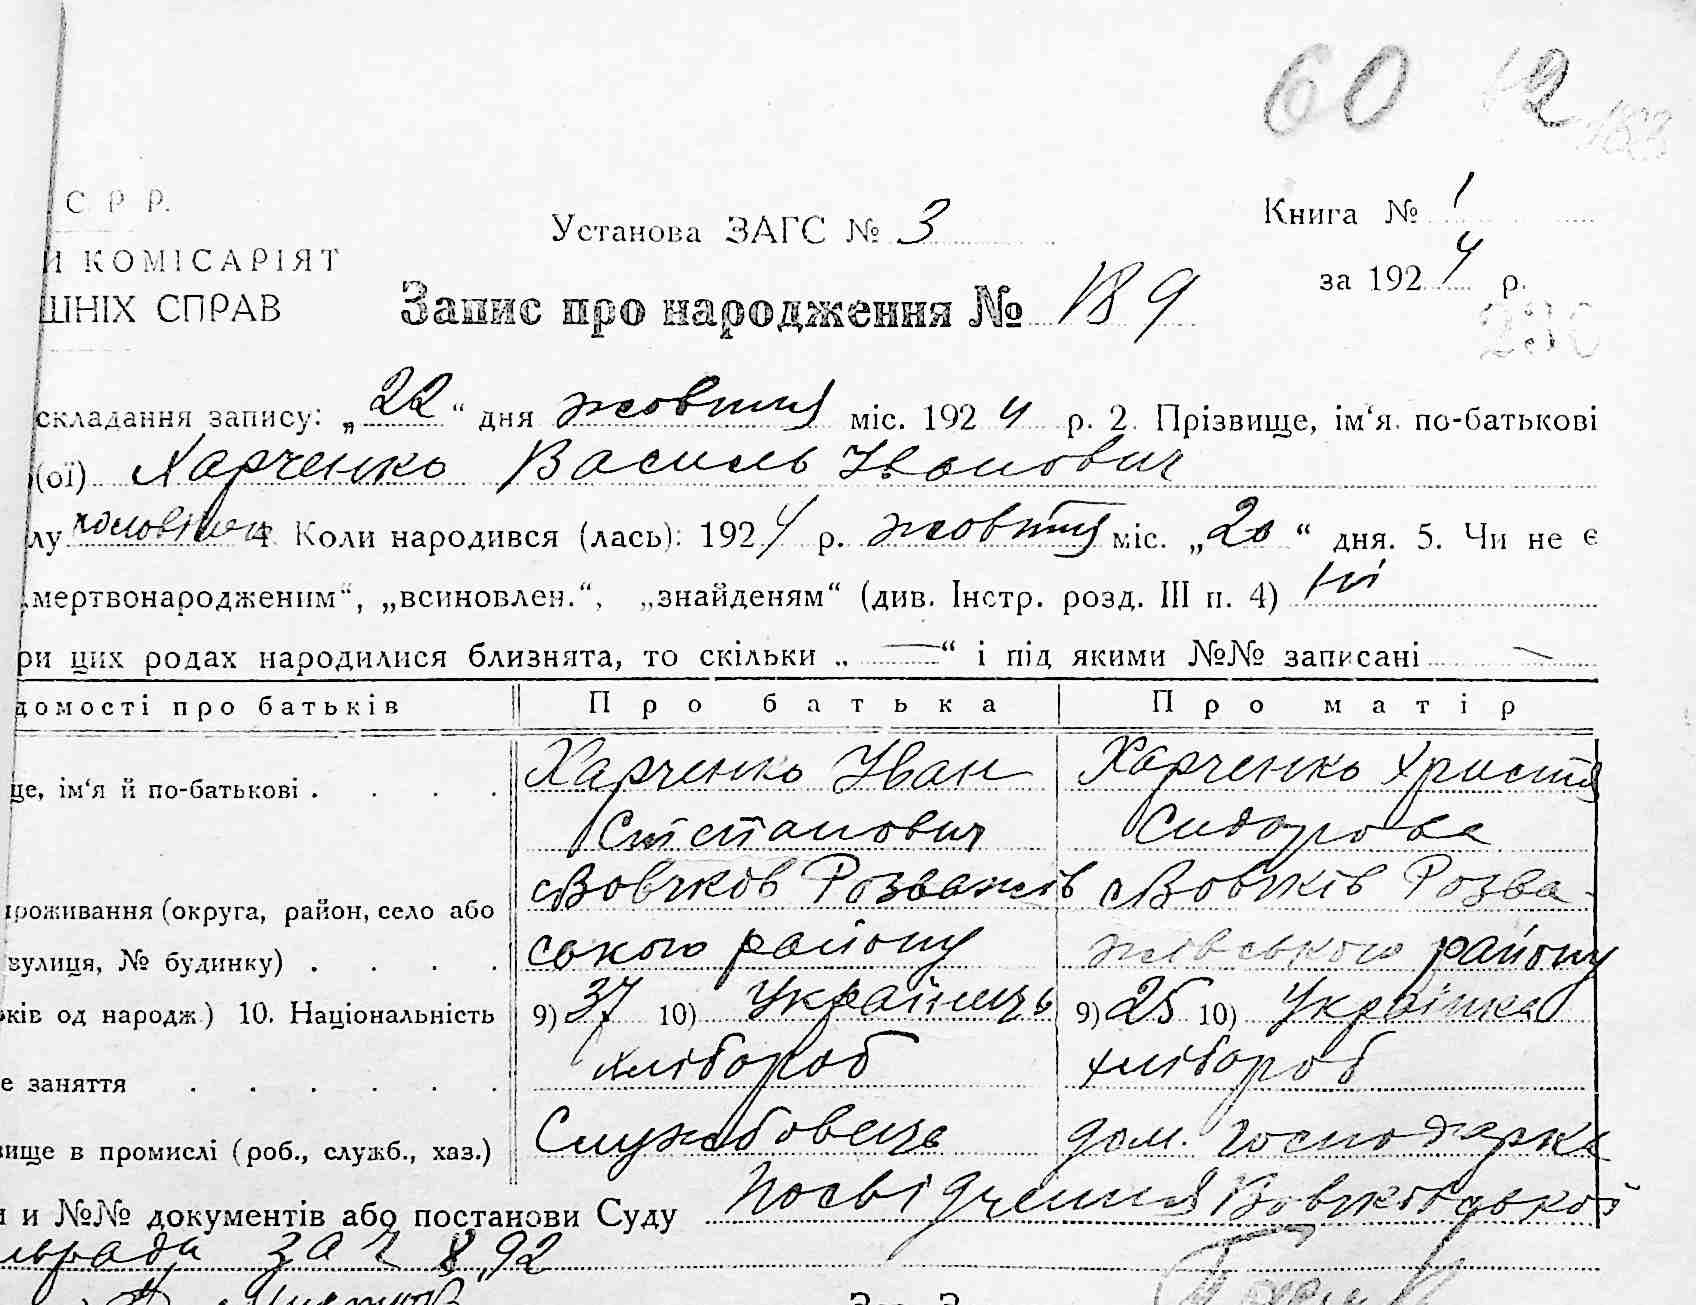 60 12
С Р Р.
Установа ЗАГС № 3
Книга № 1
КОМІСАРІЯТ
за 1924 р.
ШНІХ СПРАВ
Запис про народження № 189
складання запису: „22“ дня жовтня міс. 1924 р. 2. Прізвище, ім‘я. по-батькові
(ої) Харченко Василь Іванович
лу чоловіч 4. Коли народився (лась): 1924 р. жовтня міс. „20“ дня. 5. Чи не є
„мертвонародженим“, „всиновлен.“, „знайденям“ (див. Інстр. розд. III п. 4) ні
ри цих родах народилися близнята, то скільки „—“ і під якими №№ записані —
домості про батьків Про батька Про матір
ще, ім‘я й по-батькові . . . . Харченко Иван Харченко Христя
Степанович Сидорова
с Вовчков Розважів с Вовчків Розва-
проживання (округа, район, село або
ського району жівського району
вулиця, № будинку) . . . .
ків од народж.) 10. Національність 9) 37 10) Українець 9) 25 10) Українка
е заняття . . . . . . хлібороб хлібороб
вище в промислі (роб., служб., хаз.) Службовець дом. господарка
и №№ документів або постанови Суду посвідчення Вовчківської
льради за ч 892